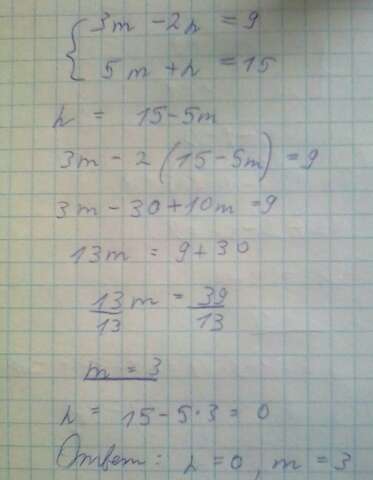 { 3m - 2n = 9
5m + n = 15
n = 15 - 5m
3m - 2 (15 - 5m) = 9
3m - 30 + 10m = 9
13m = 9 + 30
13/13 m = 39/13
m = 3
n = 15 - 5·3 = 0
Ответ: n = 0, m = 3